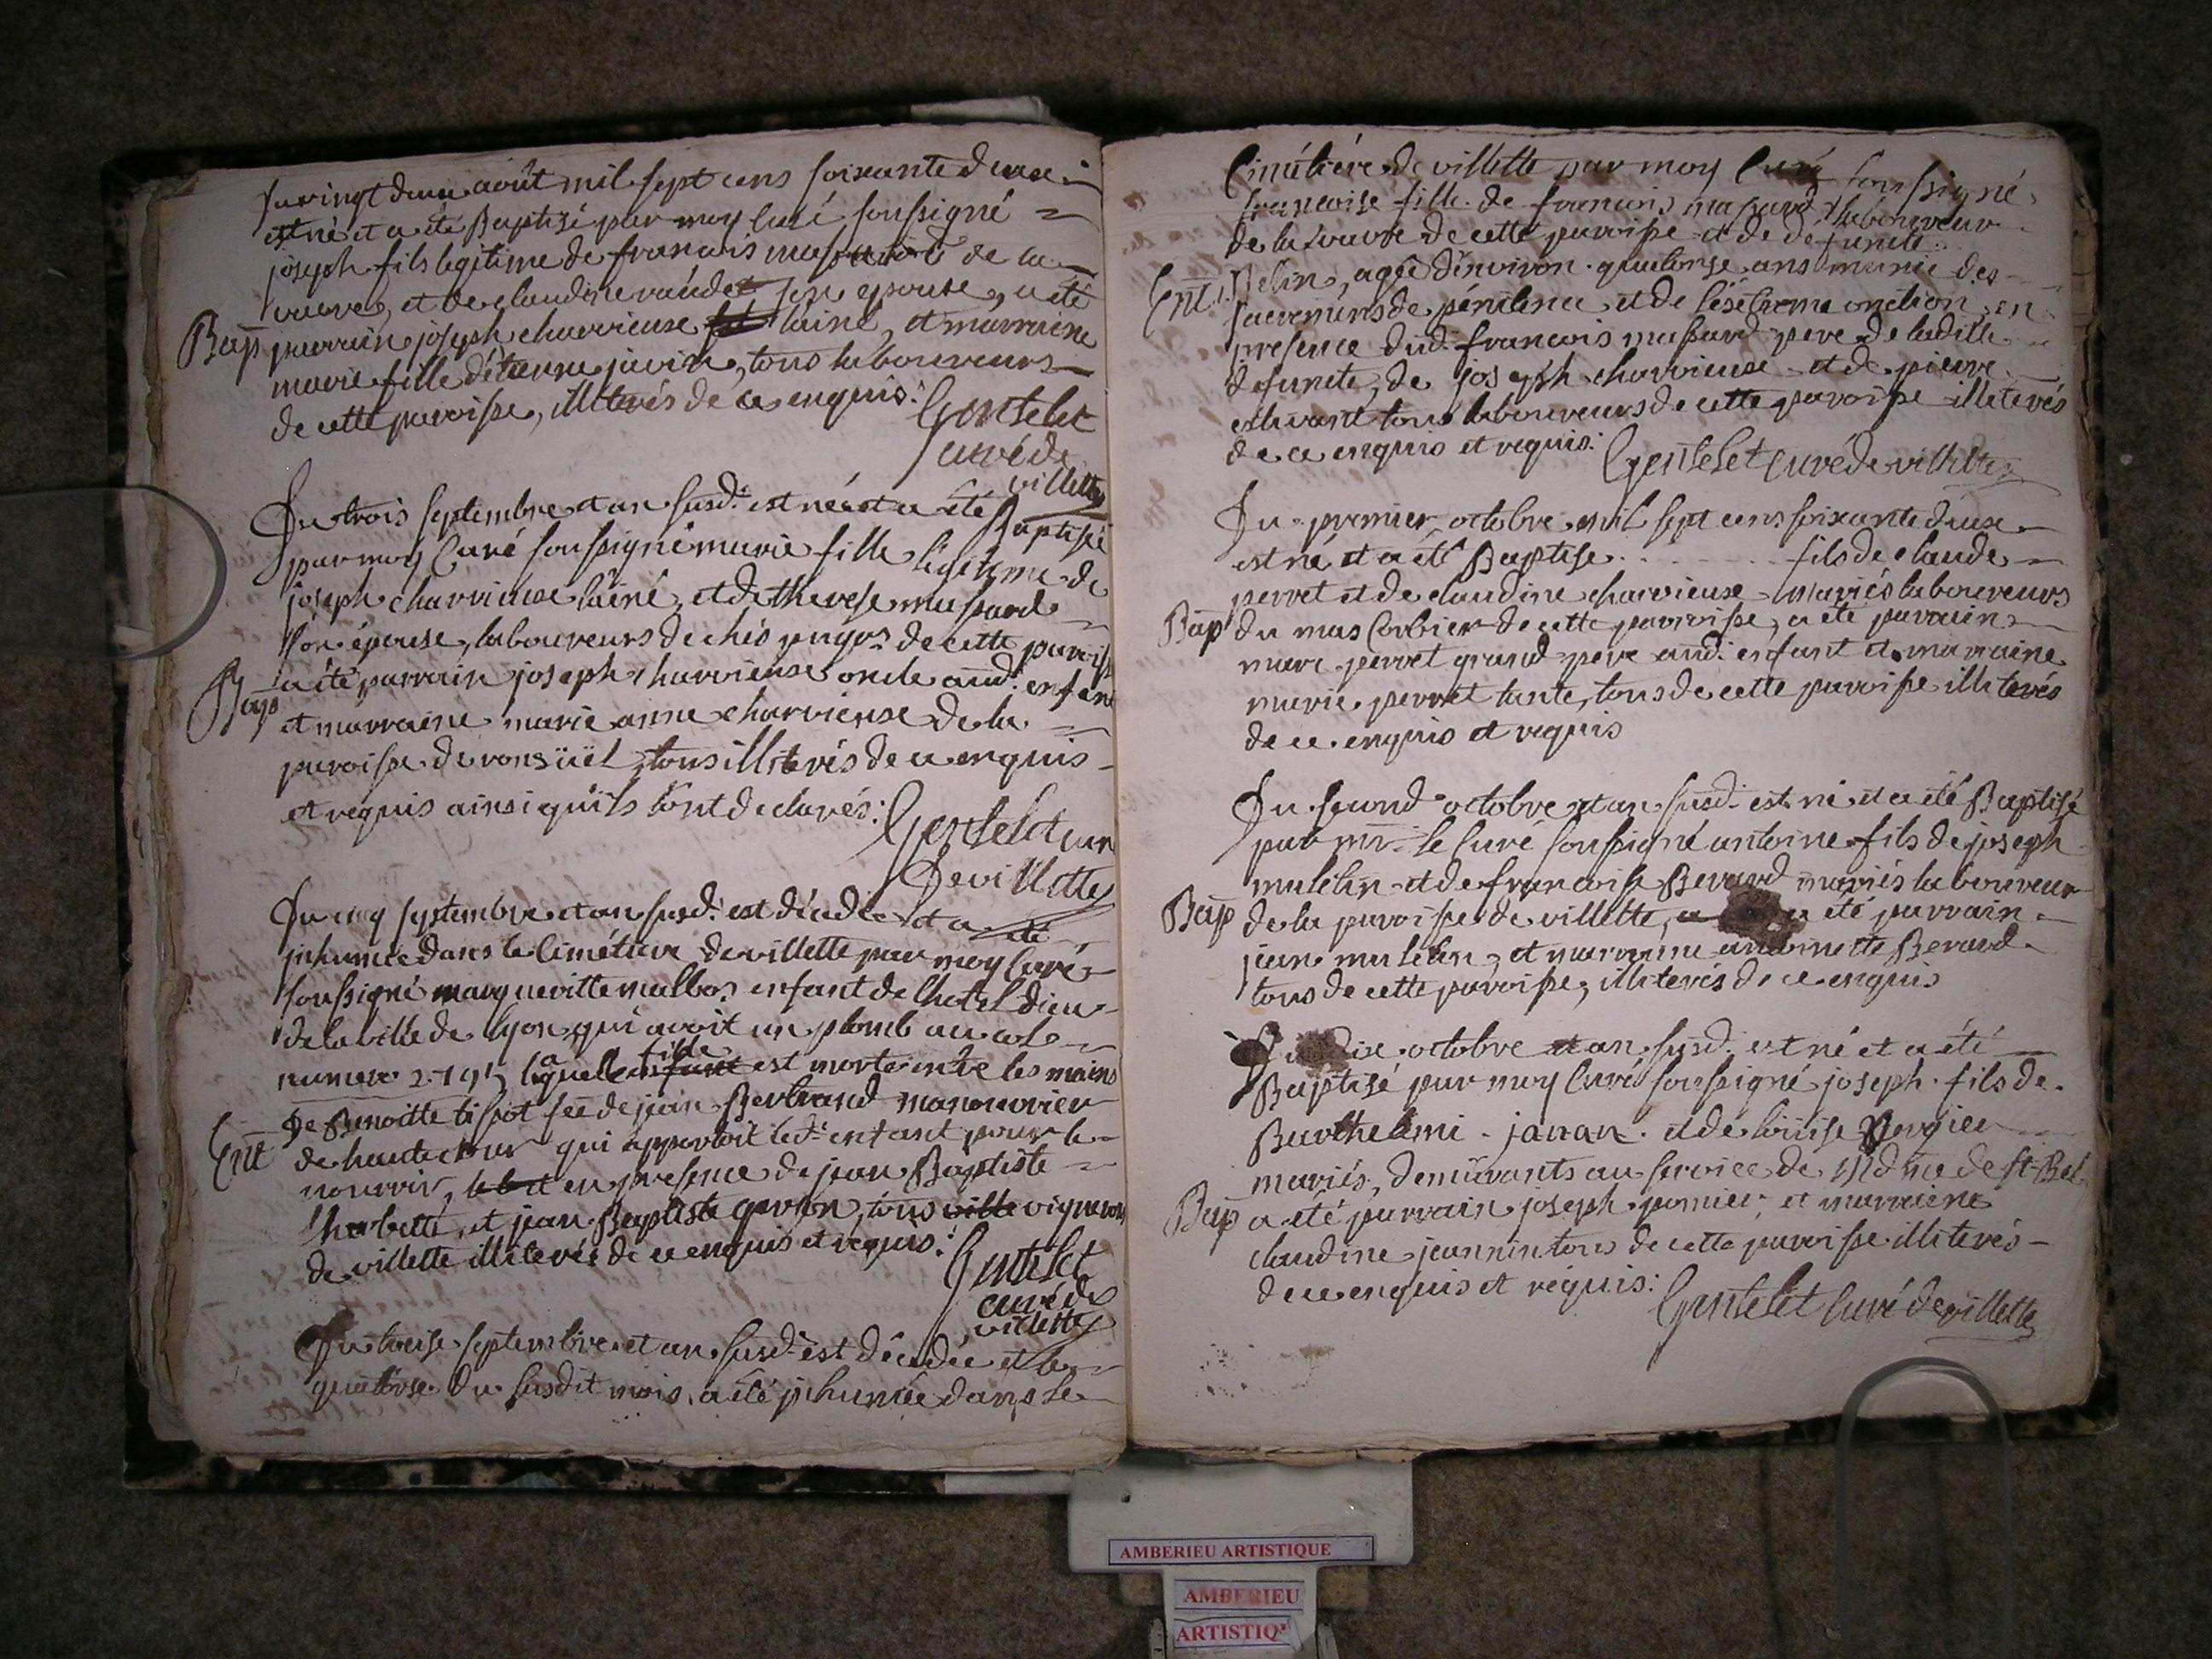 Du vingt deux août mil sept cens soixante deux
est né et a été Baptisé par moy Curé soussigné
joseph fils legitime de francois massard de la
et de claudine son epouse, a été
Bap parrain joseph charvieuse lainé, et marraine
marie fille d'étienne javin, tous laboureurs
de cette paroisse, illiterés de ce enquis. Gentelet
curé de
villette
Du trois septembre et an susd. est née et a été Baptisée
par moy Curé soussigné marie fille légitime de
joseph charvieuse lainé, et de therese massard
son épouse, laboureurs de de cette paroisse
Bap a été parrain joseph charvieuse oncle aud. enfant
et marraine marie anne charvieuse de la
paroisse de tous illiterés de ce enquis
et requis ainsi qu'ils l'ont declarés: Gentelet cur
De villette
Du cinq septembre et an susd. est décedée et a été
inhumée dans le Cimétière de villette par moy Curé
soussigné margueritte malbos enfant de l'hotel dieu
de la ville de lyon qui avoit un plomb au col
numero laquelle fille est morte entre les mains
De Benoitte tissot fee de jean Bertrand manouvrier
Ent de hautecour qui apportoit led. enfant pour le
nourrir, en presence de jean Baptiste
herbette, et jean Baptiste tous vignerons
de villette illiterés de ce enquis et requis. Gentelet
curé de
villette
Du treise septembre et an susd. est décedée et le
quatorse du susdit mois a été inhumée dans le
Cimétière de villette par moy Curé soussigné
francoise fille de francois massard laboureur
de la de cette paroisse et de défuncte
Ent. Belin, agée d'environ quatorse ans munie des
sacremens de pénitence et de l'éxtreme onction en
presence dud. francois massard pere de ladite
defuncte, de joseph charvieuse et de pierre
tous laboureurs de cette paroisse illiterés
de ce enquis et requis. Gentelet curé de villette
Du premier octobre mil sept cens soixante deux
est né et a été Baptise . . . . . . fils de claude
perret et de claudine charvieuse mariés laboureurs
Bap du mas Corbier de cette parroisse, a été parrain
marc perret grand pere aud. enfant et marraine
marie perret tante, tous de cette paroisse illiterés
de ce enquis et requis
Du second octobre et an susd. est né et a été Baptisé
par mr. le Curé soussigné antoine fils de joseph
mulelin et de francoise Berard mariés laboureur
Bap de la paroisse de villette, a été parrain
jean mulelin, et marraine antoinette Berard
tous de cette paroisse, illiterés de ce enquis
Du octobre et an susd. est né et a été
Baptisé par moy Curé soussigné joseph fils de
Barthelemi janan et de louise
mariés, demeurants au service de de St Bel
Bap a été parrain joseph pomier, et marraine
claudine jeannin tous de cette paroisse illiterés
de ce enquis et requis: Gentelet Curé de villette
AMBERIEU ARTISTIQUE
AMBERIEU
ARTISTIQ